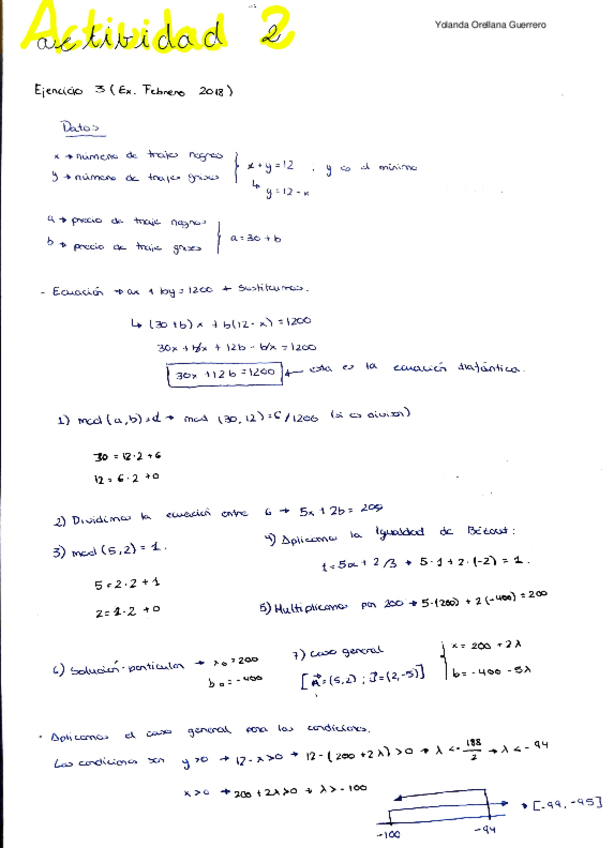 Actividad 2
actividad 2
Yolanda Orellana Guerrero
Ejercicio 3 (Ex. Febrero 2018)
Datos
x → número de trajes negros
y → número de trajes grises
x + y = 12 , y es el mínimo
↳ y = 12 - x
a → precio de traje negros
b → precio de traje grises
a = 30 + b
- Ecuación → ax + by = 1200 → Sustituimos.
↳ (30 + b) x + b(12 - x) = 1200
30x + bx + 12b - bx = 1200
30x + 12b = 1200 ← esta es la ecuación diofántica.
1) mcd (a, b) = d → mcd (30, 12) = 6 / 1200 (si es divisor)
30 = 12·2 + 6
12 = 6·2 + 0
2) Dividimos la ecuación entre 6 → 5x + 2b = 200
3) mcd (5, 2) = 1.
5 = 2·2 + 1
2 = 1·2 + 0
4) Aplicamos la Igualdad de Bézout:
1 = 5α + 2β → 5·1 + 2·(-2) = 1.
5) Multiplicamos por 200 → 5·(200) + 2(-400) = 200
6) Solución particular → x₀ = 200
b₀ = -400
7) caso general
[A = (5, 2) ; J = (2, -5)]
x = 200 + 2λ
b = -400 - 5λ
· Aplicamos el caso general para las condiciones.
Las condiciones son y > 0 → 12 - x > 0 → 12 - (200 + 2λ) > 0 → λ < - 188/2 → λ < - 94
x > 0 → 200 + 2λ > 0 → λ > - 100
-100 -94 → [-99, -95]